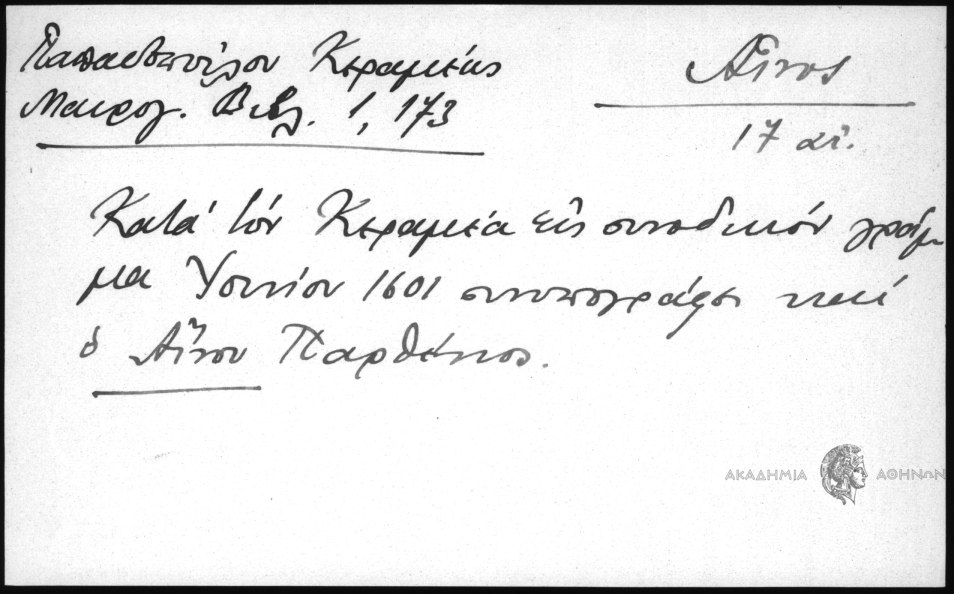 Παπαδοπούλου Κεραμέως
Μαυρογ. Βιβλ. 1, 173
Αἶνος
17 αἰ.
Κατά τόν Κεραμέα εἰς συνοδικόν γράμ
μα Ἰουνίου 1601 συνυπογράφει καί
ὁ Αἴνου Παρθένιος.
ΑΚΑΔΗΜΙΑ ΑΘΗΝΩΝ